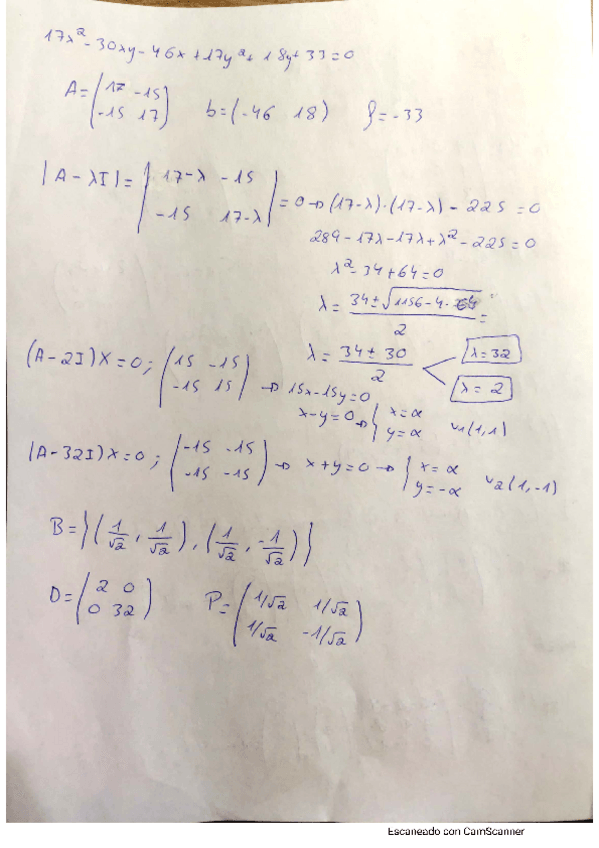 17x² - 30xy - 46x + 17y² + 18y + 33 = 0
A = (17 -15
-15 17) b = (-46 18) f = -33
|A - λI| = |17-λ -15
-15 17-λ| = 0 → (17-λ)·(17-λ) - 225 = 0
289 - 17λ - 17λ + λ² - 225 = 0
λ² - 34 + 64 = 0
λ = (34 ± √(1156 - 4·64))/2 =
λ = (34 ± 30)/2 λ = 32
λ = 2
(A - 2I)X = 0; (15 -15
-15 15) → 15x - 15y = 0
x - y = 0 → {x = α
y = α v1(1,1)
|A - 32I)X = 0; (-15 -15
-15 -15) → x + y = 0 → {x = α
y = -α v2(1,-1)
B = {(1/√2, 1/√2), (1/√2, -1/√2)}
D = (2 0
0 32) P = (1/√2 1/√2
1/√2 -1/√2)
Escaneado con CamScanner